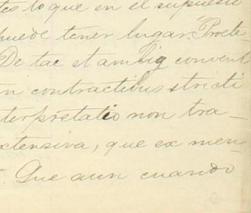 tes lo que en el supuesto
puede tener lugar. Procte
De tac et ambig convent
n contractibus stricti
terpretatio non tra-
extensiva, que ex men
Que aun cuando